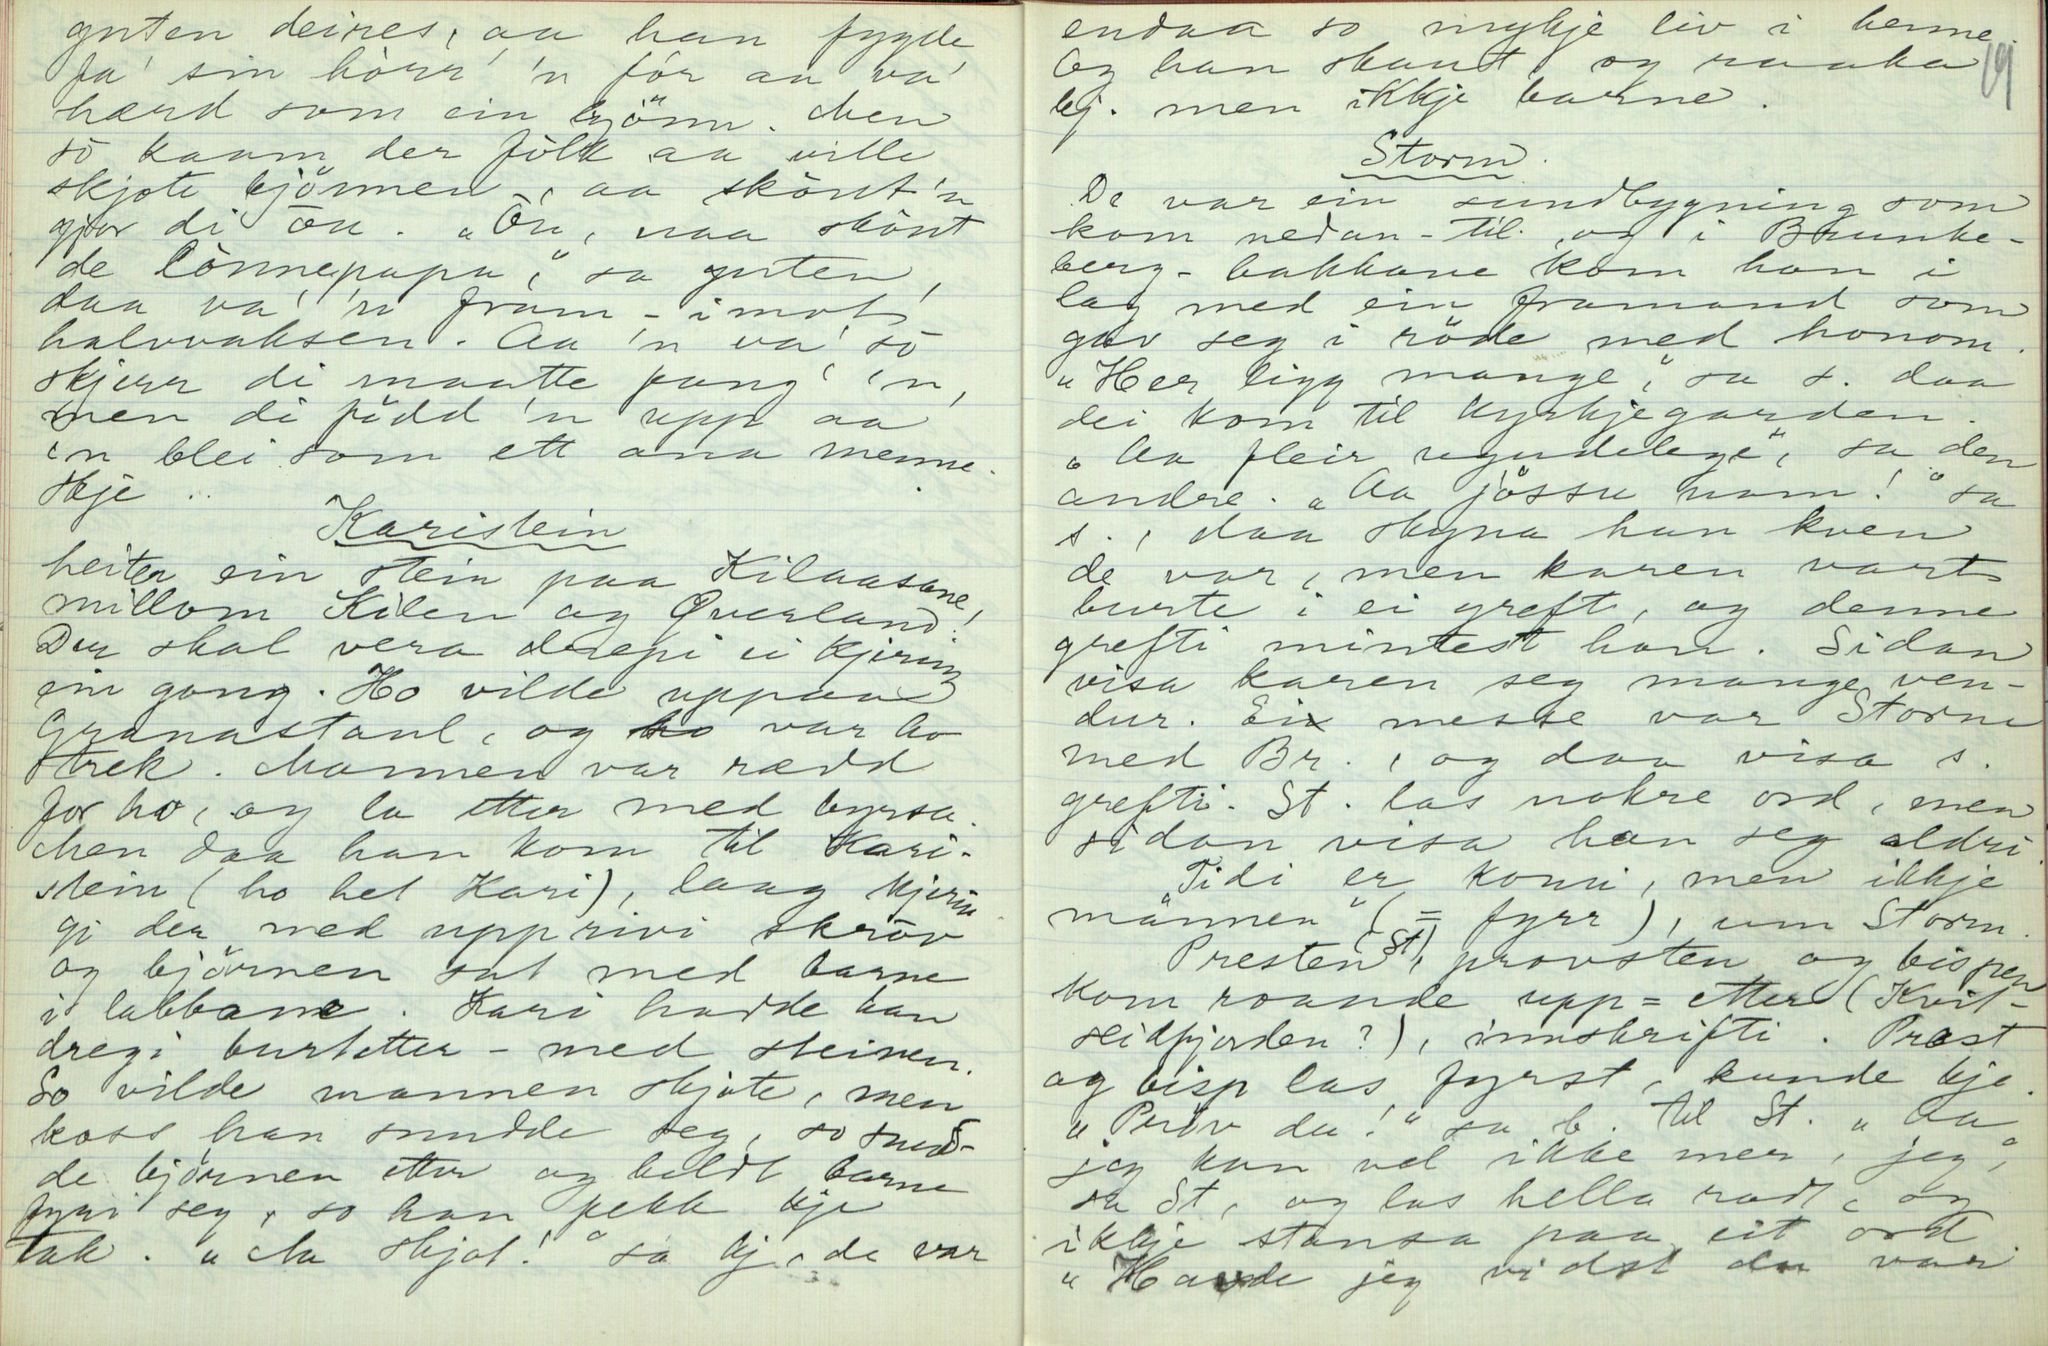 guten deires, aa han fygde
fa' sin hörr 'n för aa va'
hærd som ein bjönn. Men
sö kaam der fölk aa ville
skjote bjönnen, aa skönt 'n
gjor di ön. „Ön, naa skönt
de lönnepapa," sa guten,
daa va' 'n fram-imot
halvvaksen. Aa 'n va' sö
skjerr di maatte fang' 'n,
men di född 'n upp aa
'n blei som ett ana menne-
skje.
Karistein
heiter ein stein paa Kilaasane,
millom Kilen og Qverland.
Der skal vera drepi ei kjering
ein gong. Ho vilde uppaa
Granastaul, og ho var ho
trek. Mannen var rædd
for ho, og la etter med byrsa.
Men daa han kom til Kari-
stein (ho het Kari), laag kjerin-
gi der med upprivi skröv
og björnen sat med barne
i labbane. Kari hadde han
dregi burtetter - med steinen.
So vilde mannen skjote, men
koss han snudde seg, so snud-
de björnen etter og heldt barne
fyri seg, so han fekk kje
tak. „Aa skjot!" sa kj, de var
endaa so mykje liv i henne.
Og han skaut, og raaka
bj. men ikkje barne.
19
Storm.
De var ein sundbygning som
kom nedan-til, og i Brunke-
berg-bakkane kom han i
lag med ein framand som
gav seg i röde med honom.
„Her ligg mange," sa s. daa
dei kom til kyrkjegarden.
„Aa fleir ugudelege", sa den
andre. „Aa jössu nam!" sa
s., daa skyna han kven
de var, men karen vart
burte i ei greft, og denne
grefti mintest han. Sidan
visa karen seg mange ven-
dur. Ei messe var Storm
med Br., og daa visa s.
grefti. St. las nokre ord, men
sidan visa han seg aldri.
„Tidi er komi, men ikkje
männen" (= fyrr), um Storm.
Presten (St), provsten og bispen
kom roande upp=etter (Kvit-
seidfjorden?), innskrifti. Prost
og bisp las fyrst, kunde kje.
„Pröv du!" sa b. til St. „Aa
jeg kan vel ikke mer, jeg",
sa St, og las hella rad, og
ikkje stansa paa eit ord.
„Havde jeg vidst du var